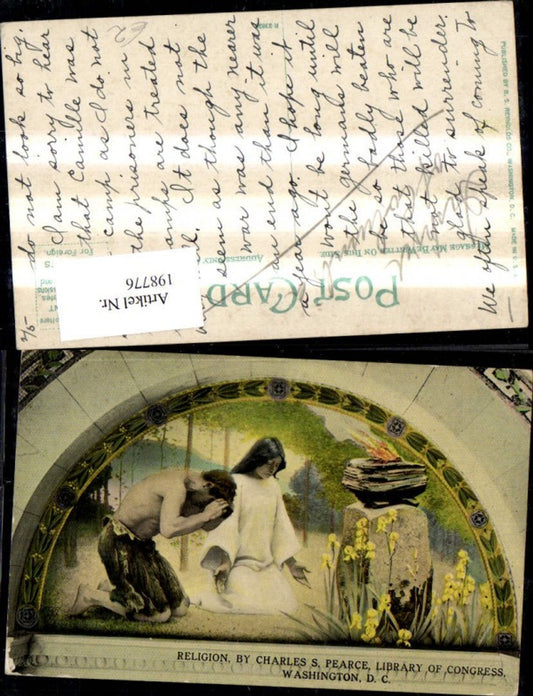 2/5-
do not look so big.
I am sorry to hear
that Camille was
camp as I do not
the prisoners in
camps are treated
It does not
seem as though the
war was any nearer
an end than it was
a year ago. I hope it
wont be long until
the germans will
be so badly beaten
that those who are
not killed will be
glad to surrender.
We often speak of coming to
POST CARD
MESSAGE MAY BE WRITTEN ON THIS SIDE
PUBLISHED BY B. S. REYNOLDS CO., WASHINGTON, D. C. MADE IN U. S. A.
For Foreign
Artikel Nr.
198776
RELIGION, BY CHARLES S. PEARCE, LIBRARY OF CONGRESS,
WASHINGTON, D. C.